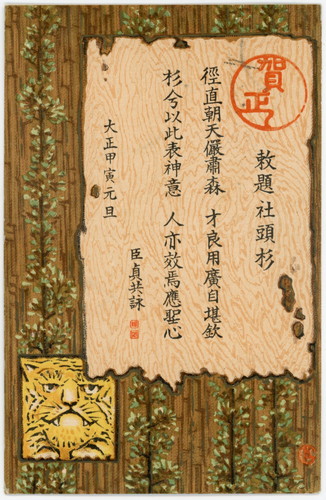 賀正
敕題社頭杉
徑直朝天儼肅森　才良用廣自堪欽
杉兮以此表神意　人亦效焉應聖心
大正甲寅元旦
臣貞共詠